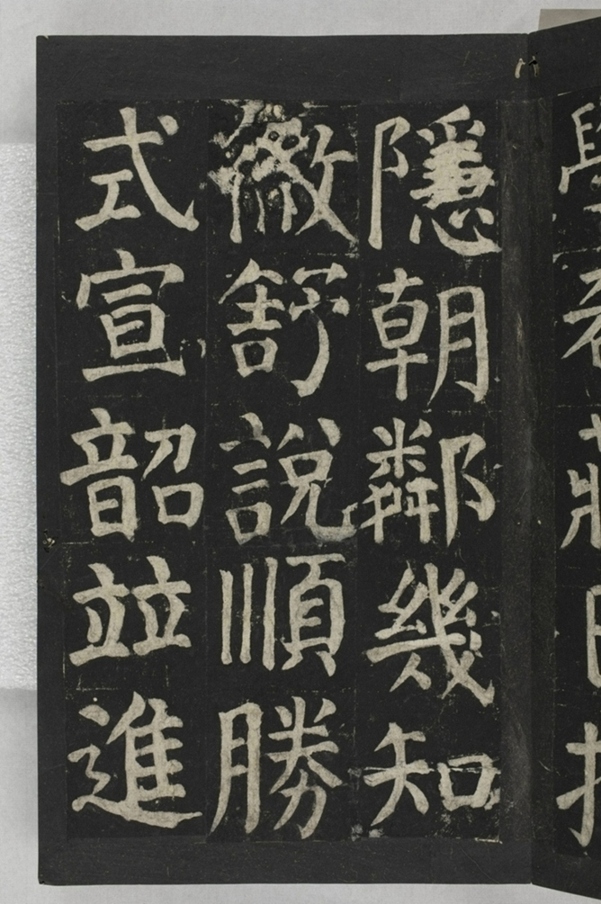 隱朝鄰幾知
微舒說順勝
式宣韶竝進